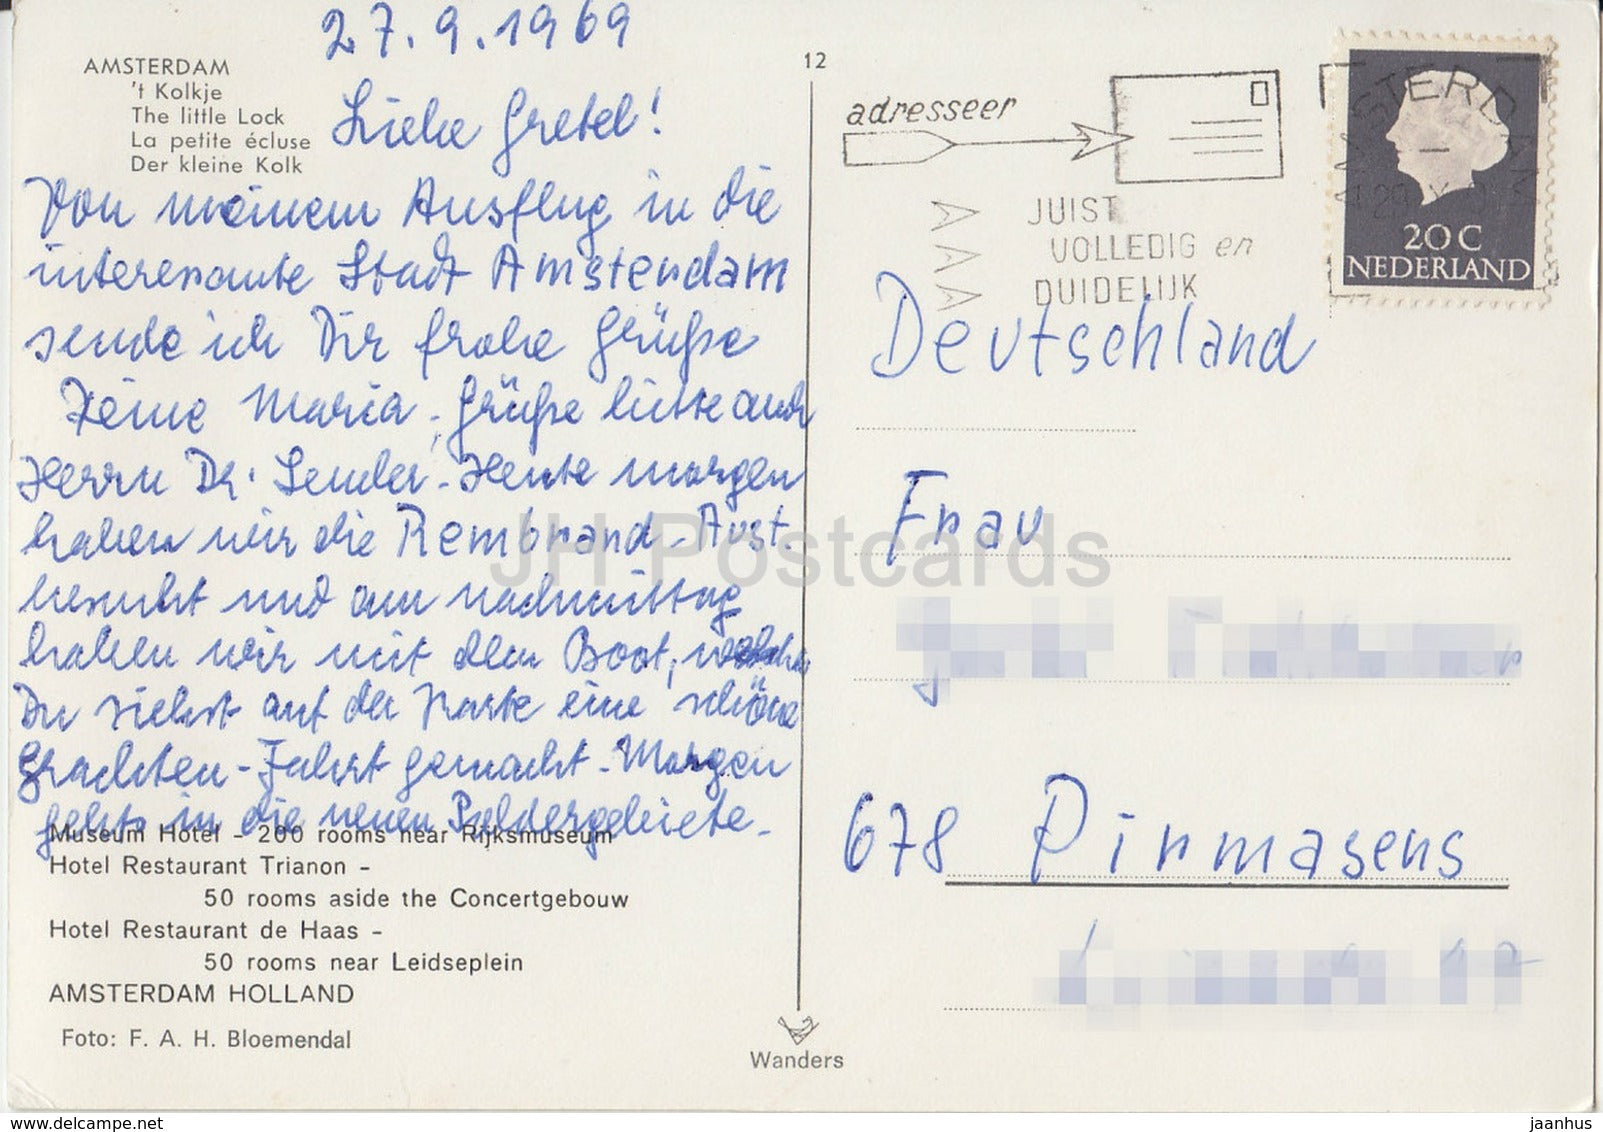 27.9.1969
AMSTERDAM
't Kolkje
The little Lock
La petite écluse
Der kleine Kolk
Liebe Gretel!
Von meinem Ausflug in die
interessante Stadt Amsterdam
sende ich Dir frohe Grüße
Deine Maria, Grüße bitte auch
Herrn Dr. - Heute morgen
haben wir die Rembrand-Ausst.
besucht und am nachmittag
haben wir mit dem Boot, welches
Du siehst auf der Karte eine schöne
Grachten-Fahrt gemacht - Morgen
gehts in die neuen Poldergebiete -
Museum Hotel - 200 rooms near Rijksmuseum
Hotel Restaurant Trianon -
50 rooms aside the Concertgebouw
Hotel Restaurant de Haas -
50 rooms near Leidseplein
AMSTERDAM HOLLAND
Foto: F. A. H. Bloemendal
12
Wanders
adresseer
JUIST
VOLLEDIG en
DUIDELIJK
AMSTERDAM
20 C
NEDERLAND
Deutschland
Frau
678 Pirmasens
JH Postcards
delcampe.net
jaanhus